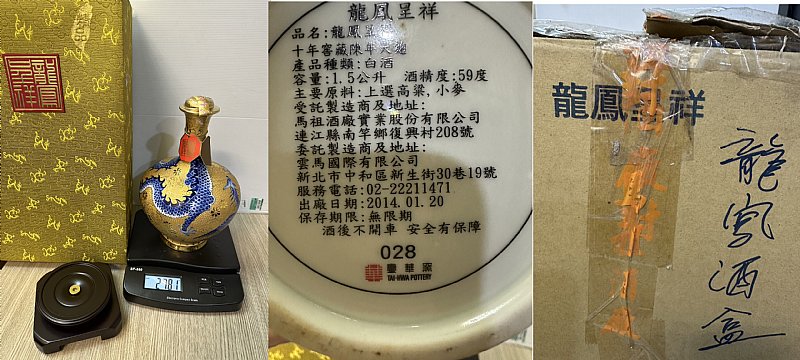 龍鳳呈祥
SF-400
2781
龍鳳呈祥
品名:龍鳳呈祥
十年窖藏陳年大麯
產品種類:白酒
容量:1.5公升 酒精度:59度
主要原料:上選高粱,小麥
受託製造商及地址:
馬祖酒廠實業股份有限公司
連江縣南竿鄉復興村208號
委託製造商及地址:
雲馬國際有限公司
新北市中和區新生街30巷19號
服務電話:02-22211471
出廠日期:2014.01.20
保存期限:無限期
酒後不開車 安全有保障
028
臺華窯
TAI-HWA POTTERY
龍鳳呈祥
龍鳳酒盒